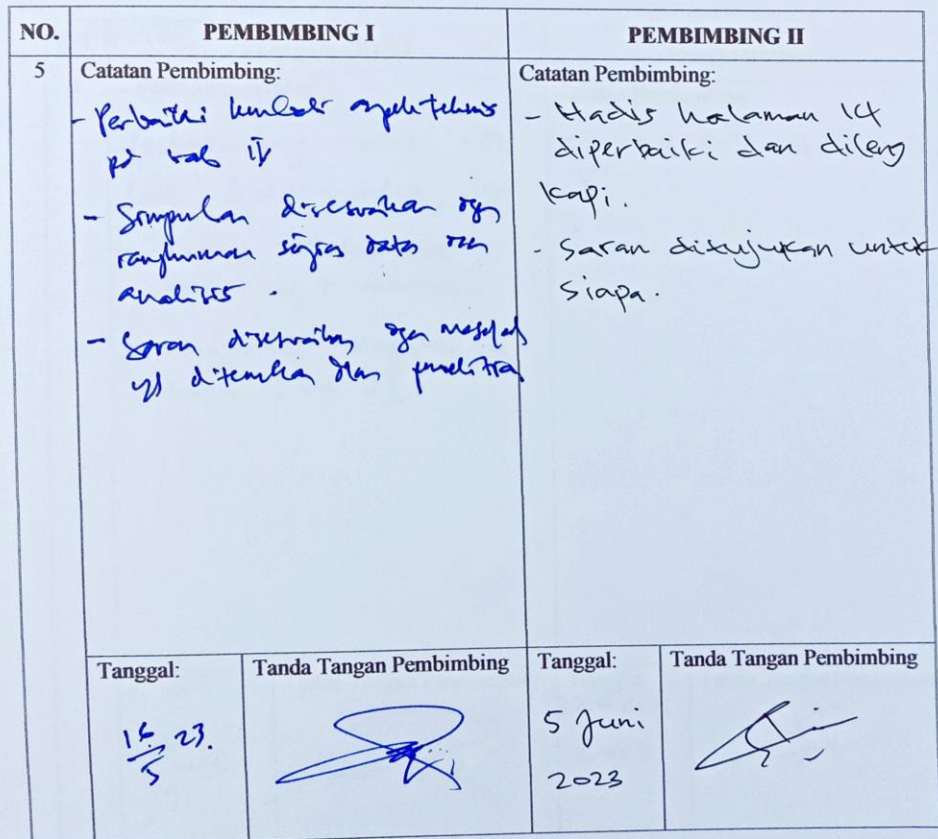 NO. PEMBIMBING I PEMBIMBING II
5 Catatan Pembimbing:
- Perbaiki kembali aspek teknis
pd bab IV
- Simpulan disesuaikan dgn
rangkuman sajian data dan
analisis.
- Saran disesuaikan dgn masalah
yg ditemukan dlm penelitian
Catatan Pembimbing:
- Hadis halaman 14
diperbaiki dan dileng
kapi.
- Saran ditujukan untuk
siapa.
Tanggal: Tanda Tangan Pembimbing Tanggal: Tanda Tangan Pembimbing
23.
5
5 Juni
2023